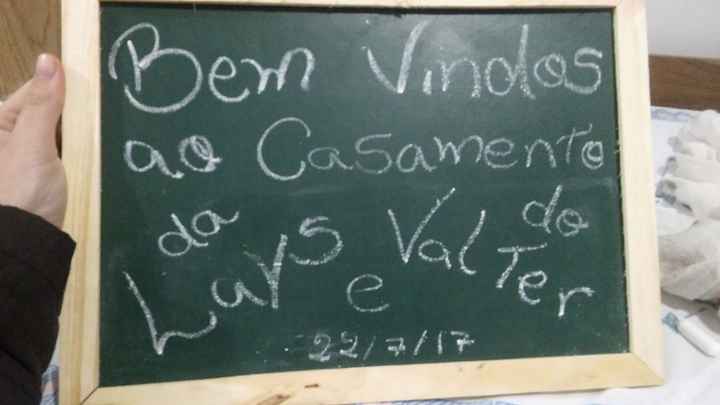 Bem Vindos
ao Casamento
da Lays e do Valter
22/7/17